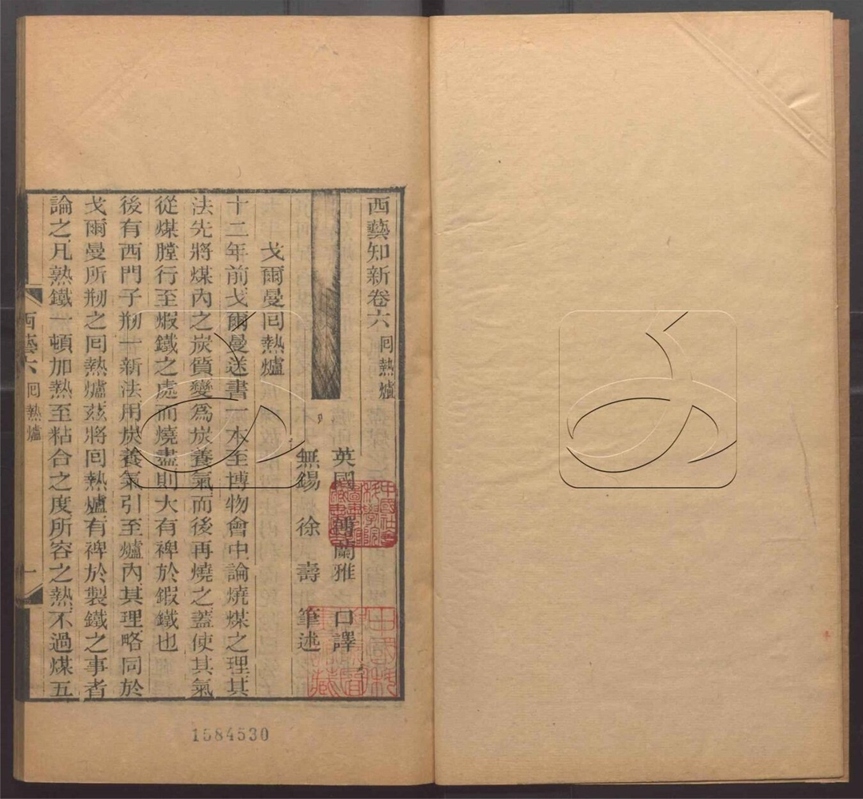 西藝知新卷六 囘熱爐
英國 傅蘭雅 口譯
無錫 徐壽 筆述
戈爾曼囘熱爐
十二年前戈爾曼送書一本至博物會中論燒煤之理其
法先將煤內之炭質變爲炭養氣而後再燒之蓋使其氣
從煤膛行至煆鐵之處而燒盡則大有裨於鍜鐵也
後有西門子剏一新法用炭養氣引至爐內其理略同於
戈爾曼所剏之囘熱爐茲將囘熱爐有裨於製鐵之事者
論之凡熟鐵一頓加熱至粘合之度所容之熱不過煤五
西藝六 囘熱爐 一
1584530